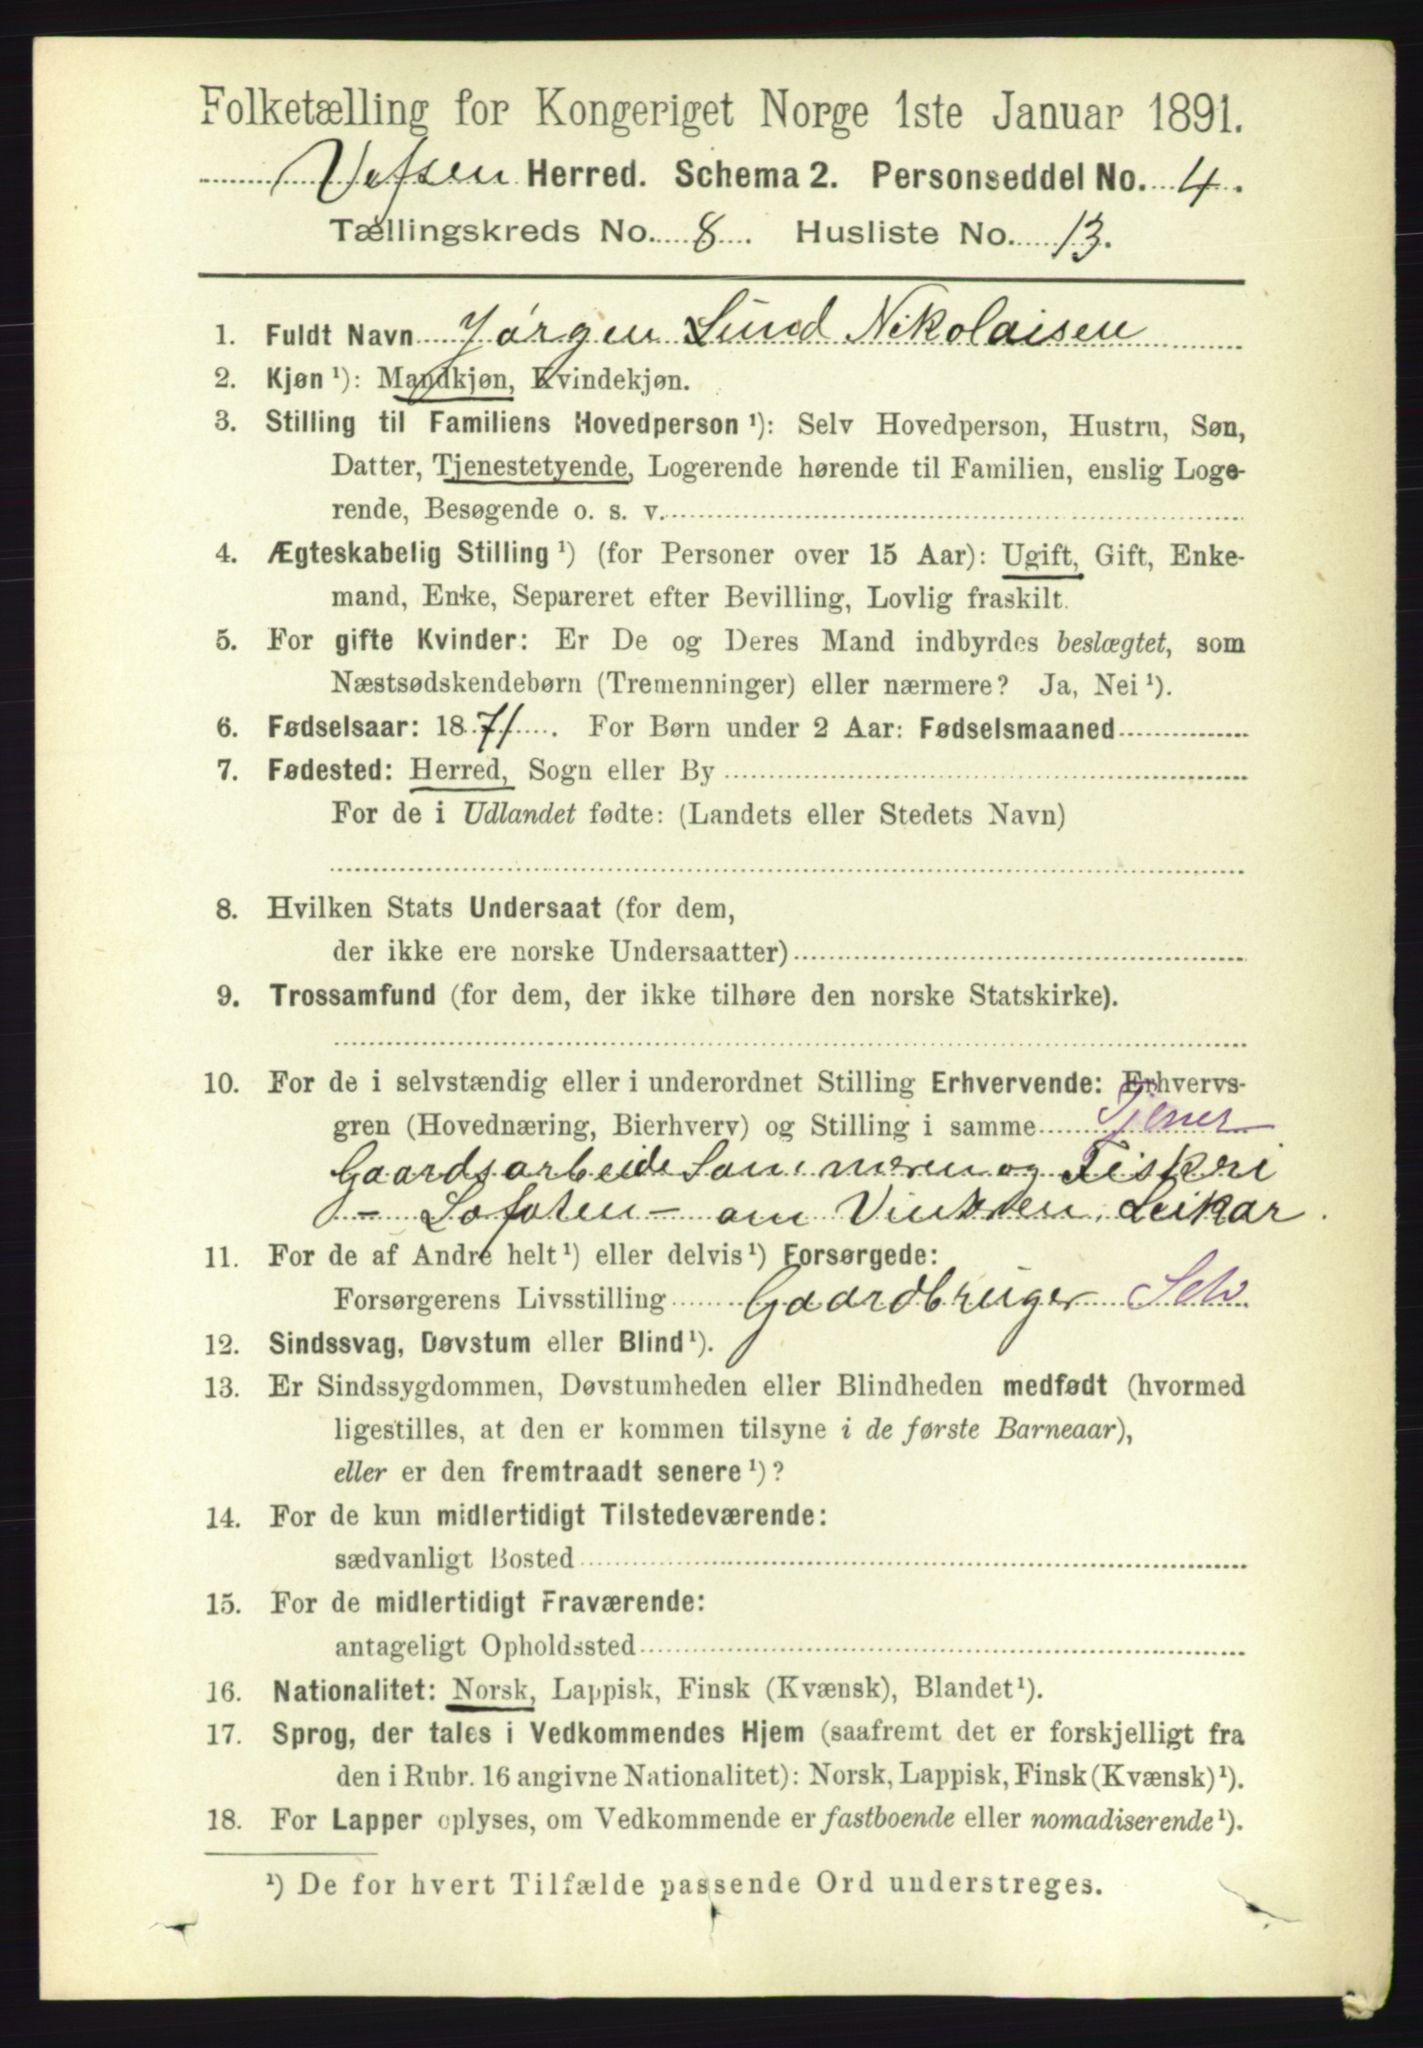 Folketælling for Kongeriget Norge 1ste Januar 1891.
Vefsen Herred. Schema 2. Personseddel No. 4.
Tællingskreds No. 8. Husliste No. 13.
1. Fuldt Navn Jørgen Lund Nikolaisen
2. Kjøn ¹): Mandkjøn, Kvindekjøn.
3. Stilling til Familiens Hovedperson ¹): Selv Hovedperson, Hustru, Søn,
Datter, Tjenestetyende, Logerende hørende til Familien, enslig Loge-
rende, Besøgende o. s. v.
4. Ægteskabelig Stilling ¹) (for Personer over 15 Aar): Ugift, Gift, Enke-
mand, Enke, Separeret efter Bevilling, Lovlig fraskilt.
5. For gifte Kvinder: Er De og Deres Mand indbyrdes beslægtet, som
Næstsødskendebørn (Tremenninger) eller nærmere? Ja, Nei ¹).
6. Fødselsaar: 1871. For Børn under 2 Aar: Fødselsmaaned
7. Fødested: Herred, Sogn eller By
For de i Udlandet fødte: (Landets eller Stedets Navn)
8. Hvilken Stats Undersaat (for dem,
der ikke ere norske Undersaatter)
9. Trossamfund (for dem, der ikke tilhøre den norske Statskirke).
10. For de i selvstændig eller i underordnet Stilling Erhvervende: Erhvervs-
gren (Hovednæring, Bierhverv) og Stilling i samme Tjener
Gaardsarbeide Sommeren og Fiskeri
- Lofoten - om Vinteren.
11. For de af Andre helt ¹) eller delvis ¹) Forsørgede:
Forsørgerens Livsstilling Gaardbruger Selv
12. Sindssvag, Døvstum eller Blind ¹).
13. Er Sindssygdommen, Døvstumheden eller Blindheden medfødt (hvormed
ligestilles, at den er kommen tilsyne i de første Barneaar),
eller er den fremtraadt senere ¹)?
14. For de kun midlertidigt Tilstedeværende:
sædvanligt Bosted
15. For de midlertidigt Fraværende:
antageligt Opholdssted
16. Nationalitet: Norsk, Lappisk, Finsk (Kvænsk), Blandet ¹).
17. Sprog, der tales i Vedkommendes Hjem (saafremt det er forskjelligt fra
den i Rubr. 16 angivne Nationalitet): Norsk, Lappisk, Finsk (Kvænsk) ¹).
18. For Lapper oplyses, om Vedkommende er fastboende eller nomadiserende ¹).
¹) De for hvert Tilfælde passende Ord understreges.